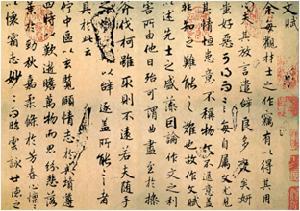 文賦
余每觀材士之作竊有以得其用
心夫其放言遣辭良多變矣妍
蚩好惡可得而言每自屬文尤見
其情恒患意不稱物文不逮意蓋
非知之難能之難也故作文賦
以述先士之盛藻因論作文之利
害所由他日殆可謂曲盡至於操
斧伐柯雖取則不遠若夫隨手
以辭逮蓋所能言者
具於此云
佇中區以玄覽頤情志於典墳遵
四時以歎逝瞻萬物而思紛悲落
葉於勁秋嘉柔條於芳春心懍
以懷霜志眇而臨雲詠世德之